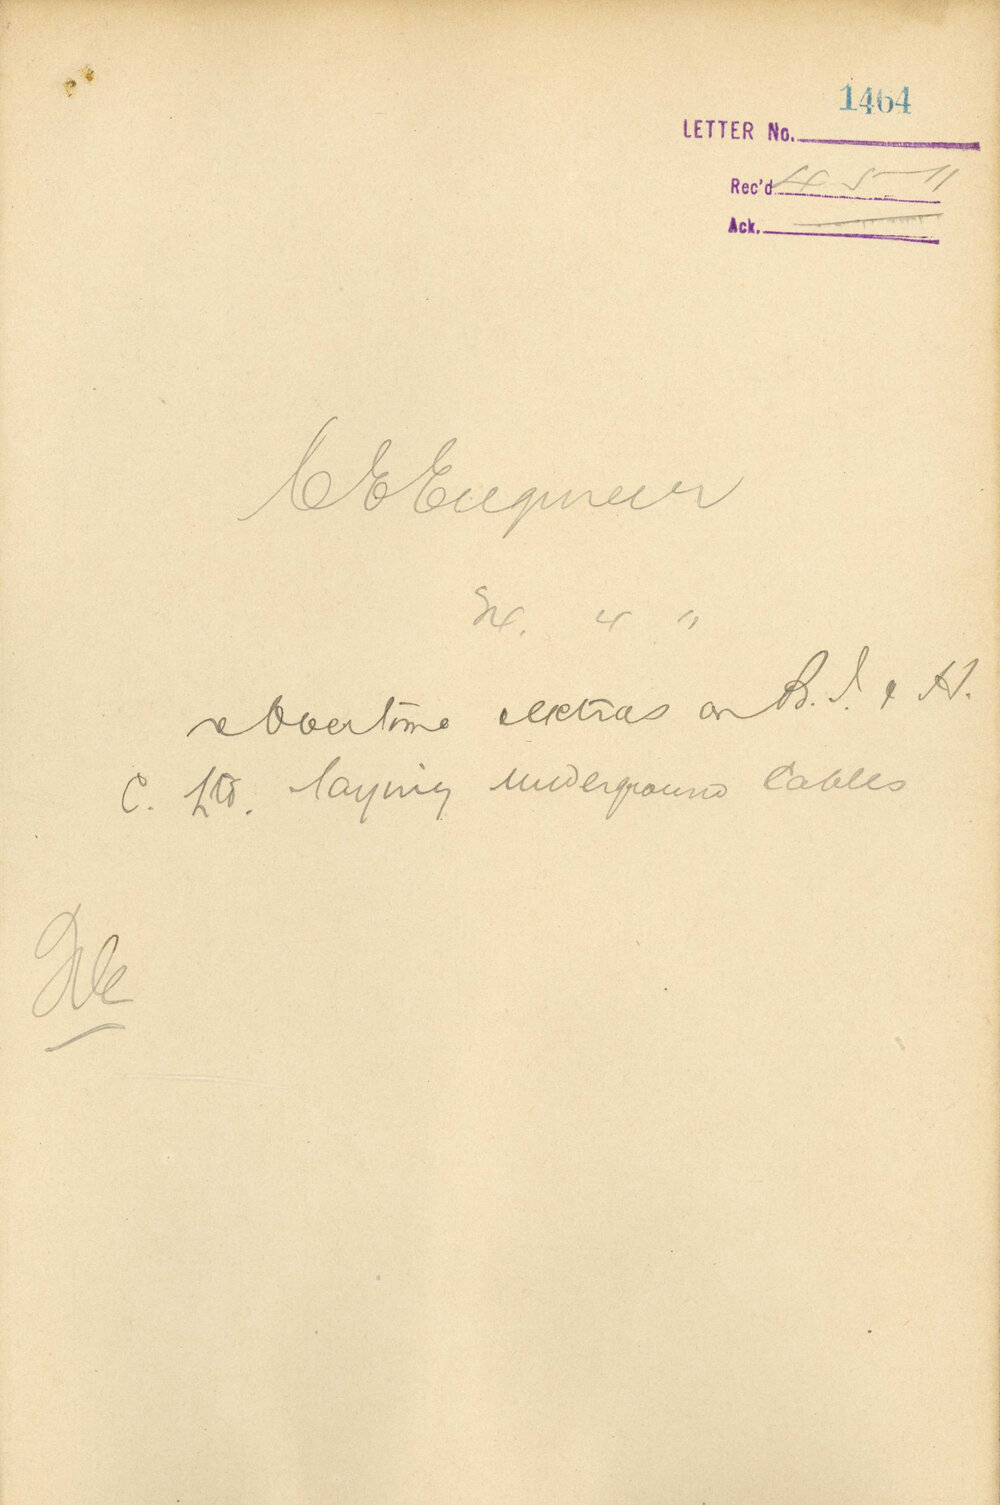 1464
LETTER No.
Rec'd 4-5-11
Ack.
C E Engineer
" "
re Overtime extras on B. I. & H.
C. Ltd. laying underground Cables
File